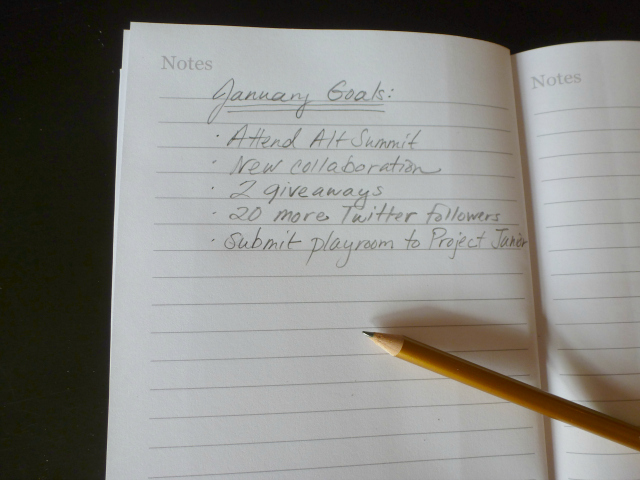 Notes
January Goals:
· Attend Alt Summit
· New collaboration
· 2 giveaways
· 20 more Twitter followers
· Submit playroom to Project Junior
Notes